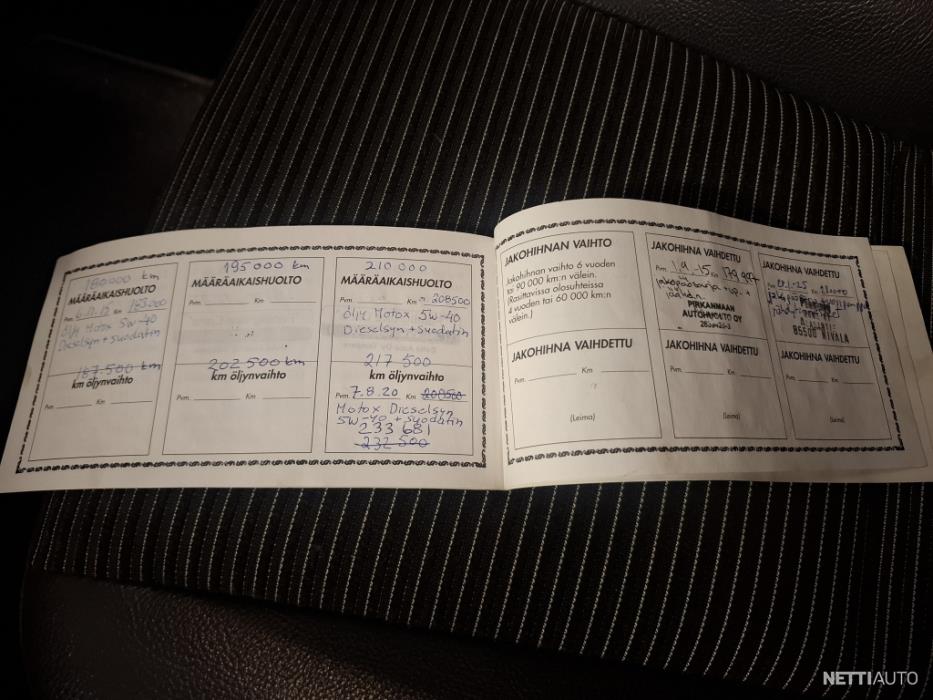 180000 km
MÄÄRÄAIKAISHUOLTO
Km 185000
öljy Motox 5w-40
Dieselsyn + suodatin
187.500 km
km öljynvaihto
Pvm. Km
195000 km
MÄÄRÄAIKAISHUOLTO
Pvm. Km
202 500 km
km öljynvaihto
Pvm. Km
210 000
MÄÄRÄAIKAISHUOLTO
Pvm. Km 208500
öljy Motox 5w-40
Dieselsyn + suodatin
217 500
km öljynvaihto
Pvm. 7.8.20 Km 208500
Motox Dieselsyn
5W-40 + suodatin
233 681
232 500
JAKOHIHNAN VAIHTO
Jakohihnan vaihto 6 vuoden
tai 90 000 km:n välein.
(Rasittavissa olosuhteissa
4 vuoden tai 60 000 km:n
välein.)
JAKOHIHNA VAIHDETTU
Pvm. 1.9.-15 Km
PIRKANMAAN
AUTOHUOLTO OY
JAKOHIHNA VAIHDETTU
85500 NIVALA
JAKOHIHNA VAIHDETTU
Pvm. Km
(Leima)
JAKOHIHNA VAIHDETTU
Pvm. Km
(Leima)
JAKOHIHNA VAIHDETTU
Pvm. Km
(Leima)
NETTIAUTO